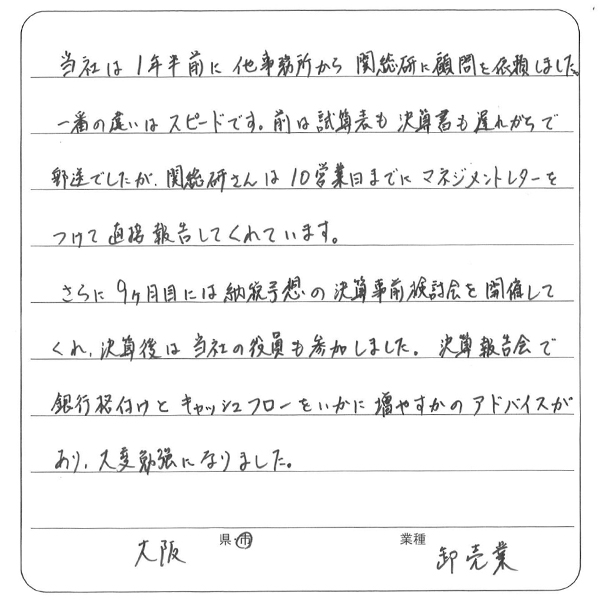 当社は1年半前に他事務所から関総研に顧問を依頼しました。
一番の違いはスピードです。前は試算表も決算書も遅れがちで
郵送でしたが、関総研さんは10営業日までにマネジメントレターを
つけて直接報告してくれています。
さらに9ヶ月目には納税予想の決算事前検討会を開催して
くれ、決算後は当社の役員も参加しました。決算報告会で
銀行格付けとキャッシュフローをいかに増やすかのアドバイスが
あり、大変勉強になりました。
大阪 県・市 業種 卸売業